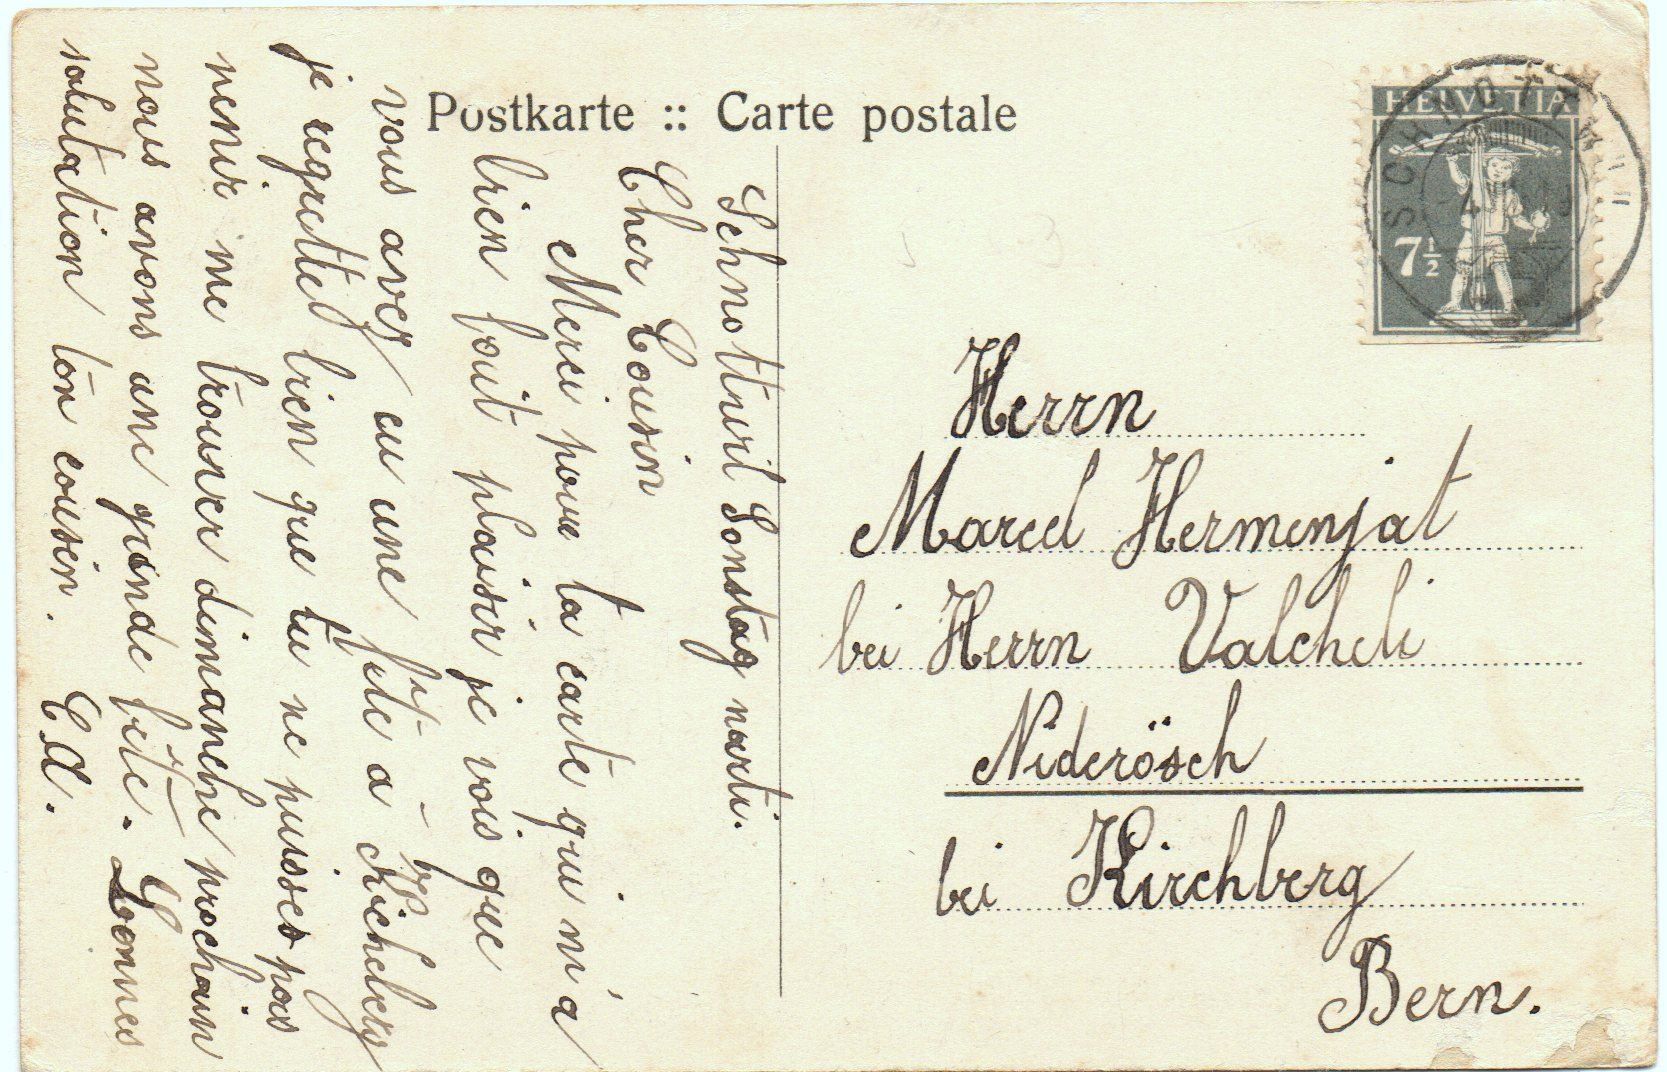 Postkarte :: Carte postale
HELVETIA
7½
SCHNOTTWIL
Schnottwil Sonstag
Cher Cousin
Merci pour ta carte qui m'a
bien fait plaisir je vois que
vous avez eu une fête à
je regrette bien que tu ne puisses pas
venir me trouver dimanche prochain
nous avons une grande fête. Bonnes
salutation ton cousin. Ed.
Herrn
Marcel Hermenjat
bei Herrn Valcheli
Niderösch
bei Kirchberg
Bern.